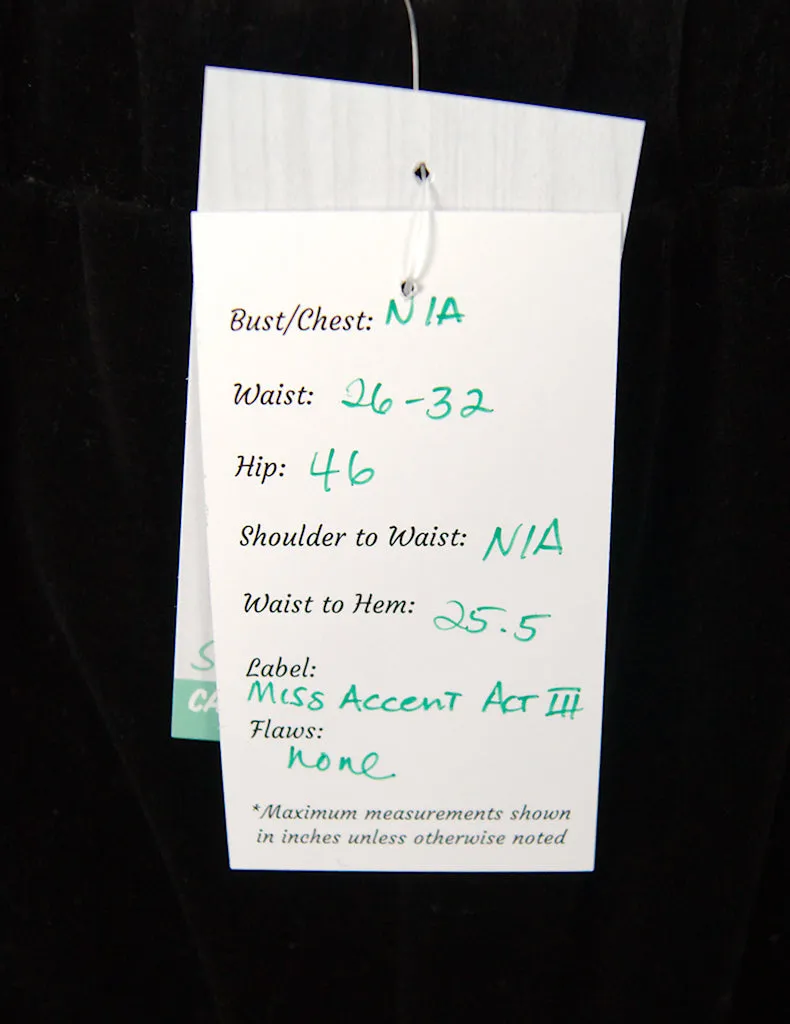 Bust/Chest: N/A
Waist: 26-32
Hip: 46
Shoulder to Waist: N/A
Waist to Hem: 25.5
Label:
Miss Accent Act III
Flaws:
none
*Maximum measurements shown
in inches unless otherwise noted